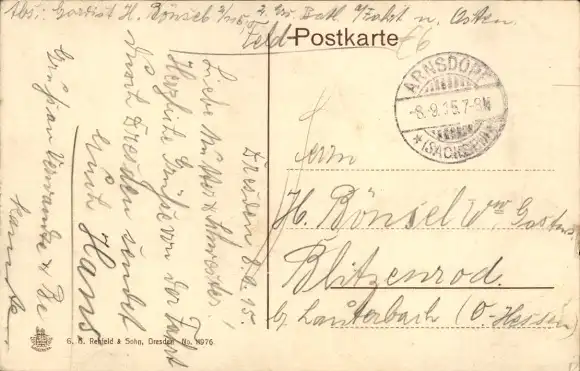 Abs: Gardist H. Bönsel
Feld-Postkarte
ARNSDORF
-8.9.15.7-8N
* (SACHSEN) *
Dresden 8.9.15.
Liebe Mutter & Schwester!
Herzliche Grüße von der Fahrt
nach Dresden sendet
Euch Hans.
Gruß an Verwandte & Be
kannte.
Herrn
H. Bönsel Ww
Blitzenrod.
b/ Lauterbach (O. Hessen)
G. G. Rehfeld & Sohn, Dresden No. 11976